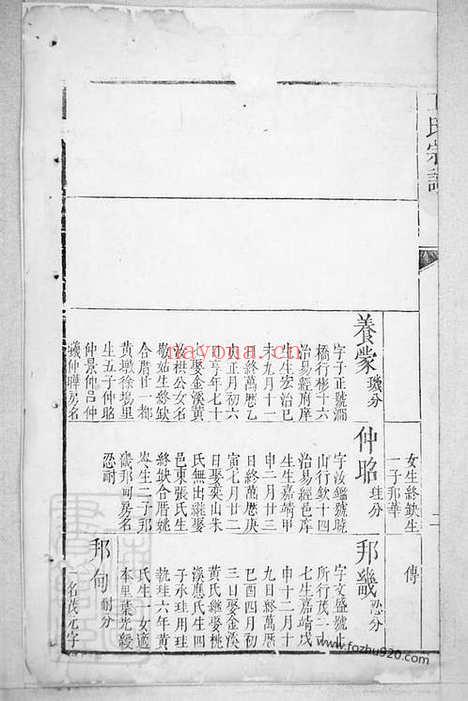 王氏宗譜
女生終缺生
一子邦華
傳
養蒙 璣分
字子正號澗
橋行彬十六
治易經府庠
生生宏治己
未九月十一
日終萬曆乙
亥正月初六
日享年七十
七娶金溪黃
汝棋公女名
敬姑生終缺
合厝廿一都
黃墩徐塢里
生五子仲昭
仲景仲呂仲
義仲曄房名
仲昭 珪分
字汝鑑號
山行欽十四
治易經邑庠
生生嘉靖甲
申二月廿三
日終萬曆庚
寅七月廿二
日娶奕山朱
氏無出繼娶
邑東張氏生
終缺合厝姚
岑生二子邦
畿邦甸房名
忍耐
邦畿 忍分
字文盛號止
所行茂二
七生嘉靖戊
申十二月十
九日終萬曆
己酉四月初
三日娶金溪
黃氏繼娶桃
溪應氏生四
子承珪用珪
執珪六年黃
氏生一女適
本里葉光綬
邦甸 耐分
一名茂元字
nayona.cn
www.fozhu920.com